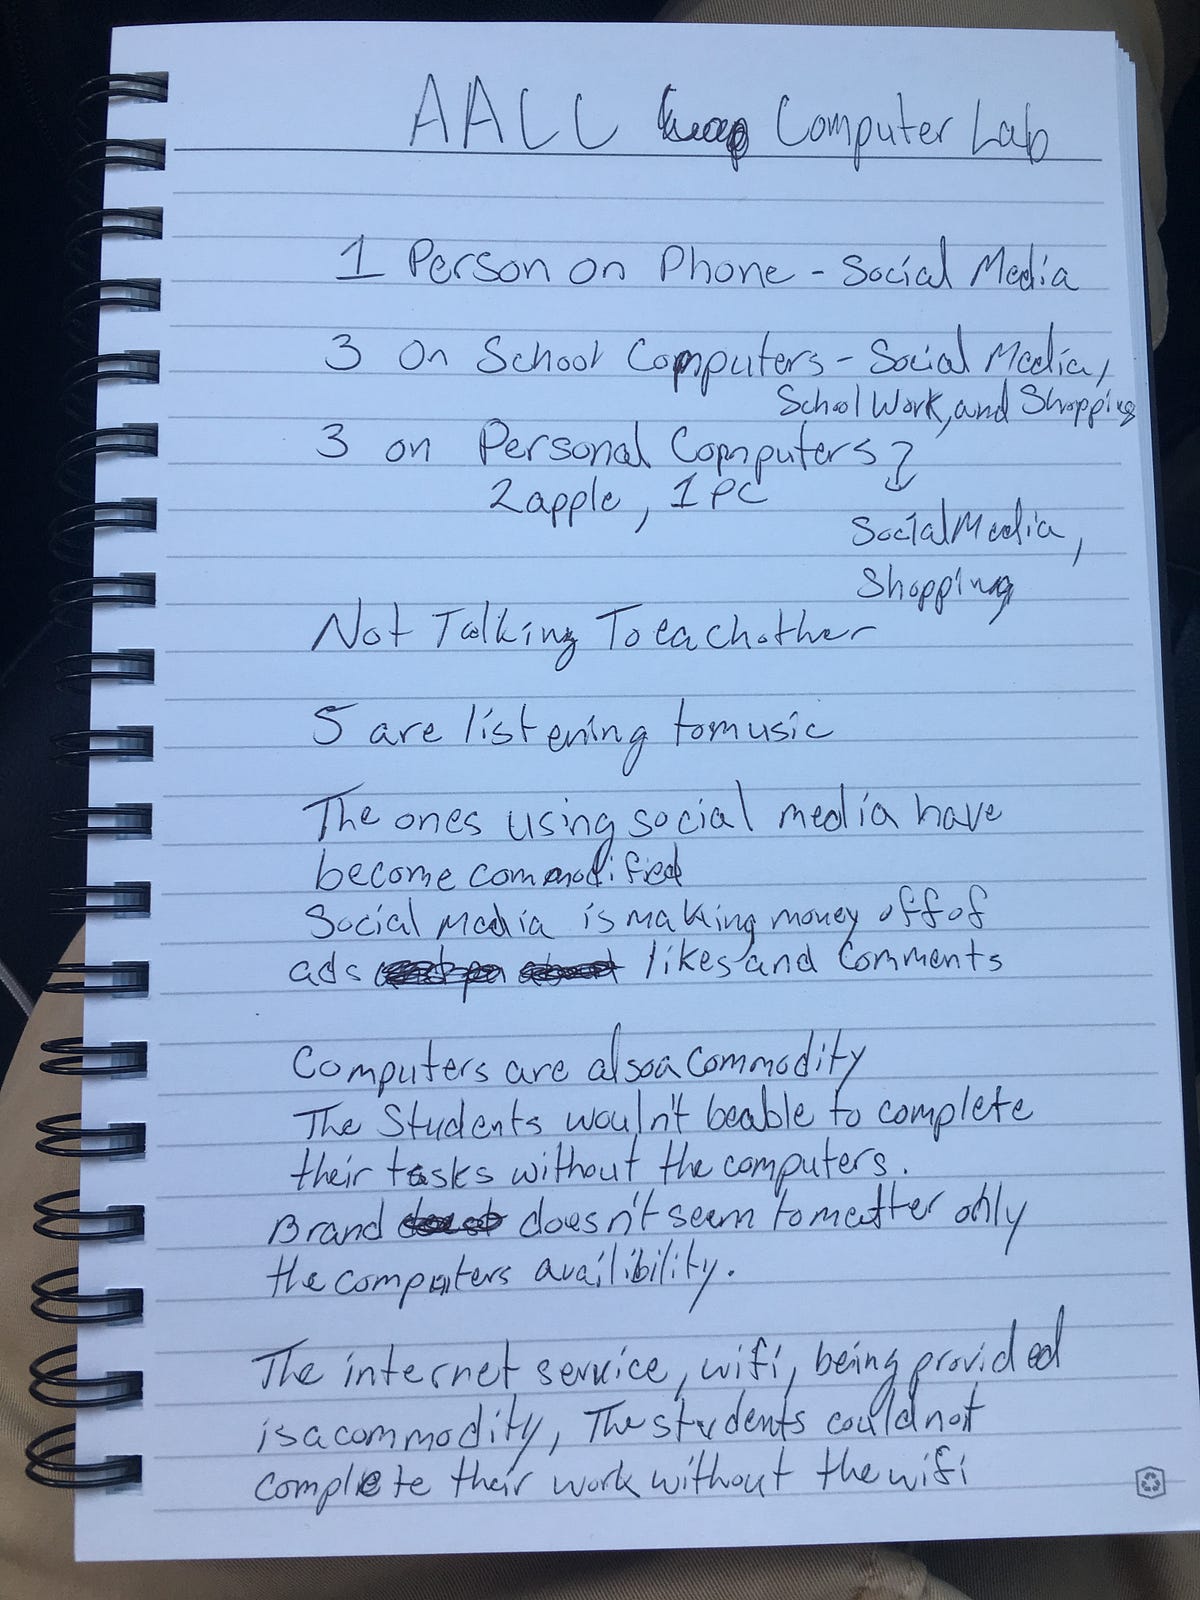 AACC Computer Lab
1 Person on Phone - Social Media
3 On School Computers - Social Media,
School Work, and Shopping
3 on Personal Computers
2 apple, 1 PC
Social Media,
Shopping
Not Talking To eachother
5 are listening to music
The ones using social media have
become commodified
Social Media is making money off of
ads likes and Comments
Computers are also a Commodity
The Students wouln't be able to complete
their tasks without the computers.
Brand doesn't seem to matter only
the computers availibility.
The internet service, wifi, being provided
is a commodity, The students could not
complete their work without the wifi